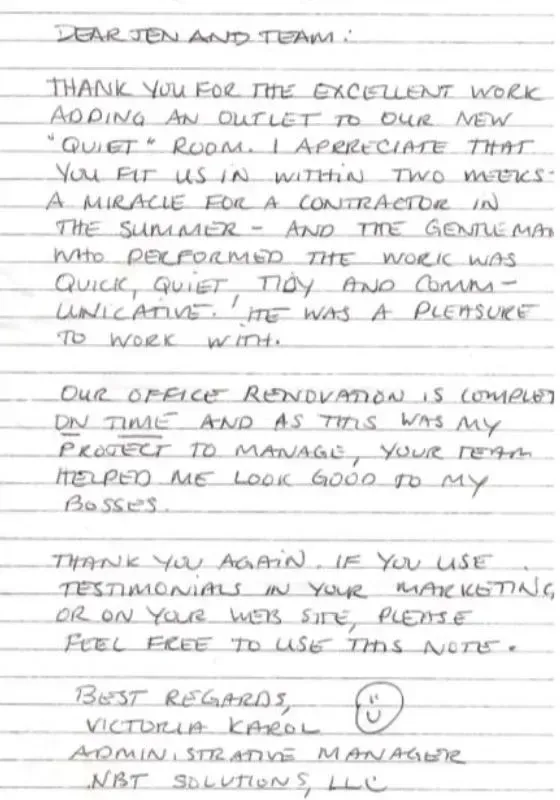 DEAR JEN AND TEAM:
THANK YOU FOR THE EXCELLENT WORK
ADDING AN OUTLET TO OUR NEW
"QUIET" ROOM. I APPRECIATE THAT
YOU FIT US IN WITHIN TWO WEEKS-
A MIRACLE FOR A CONTRACTOR IN
THE SUMMER - AND THE GENTLEMAN
WHO PERFORMED THE WORK WAS
QUICK, QUIET, TIDY AND COMM-
UNICATIVE. HE WAS A PLEASURE
TO WORK WITH.
OUR OFFICE RENOVATION IS COMPLET
ON TIME AND AS THIS WAS MY
PROJECT TO MANAGE, YOUR TEAM
HELPED ME LOOK GOOD TO MY
BOSSES.
THANK YOU AGAIN. IF YOU USE
TESTIMONIALS IN YOUR MARKETING,
OR ON YOUR WEB SITE, PLEASE
FEEL FREE TO USE THIS NOTE.
BEST REGARDS,
VICTORIA KAROL
ADMINISTRATIVE MANAGER
NBT SOLUTIONS, LLC